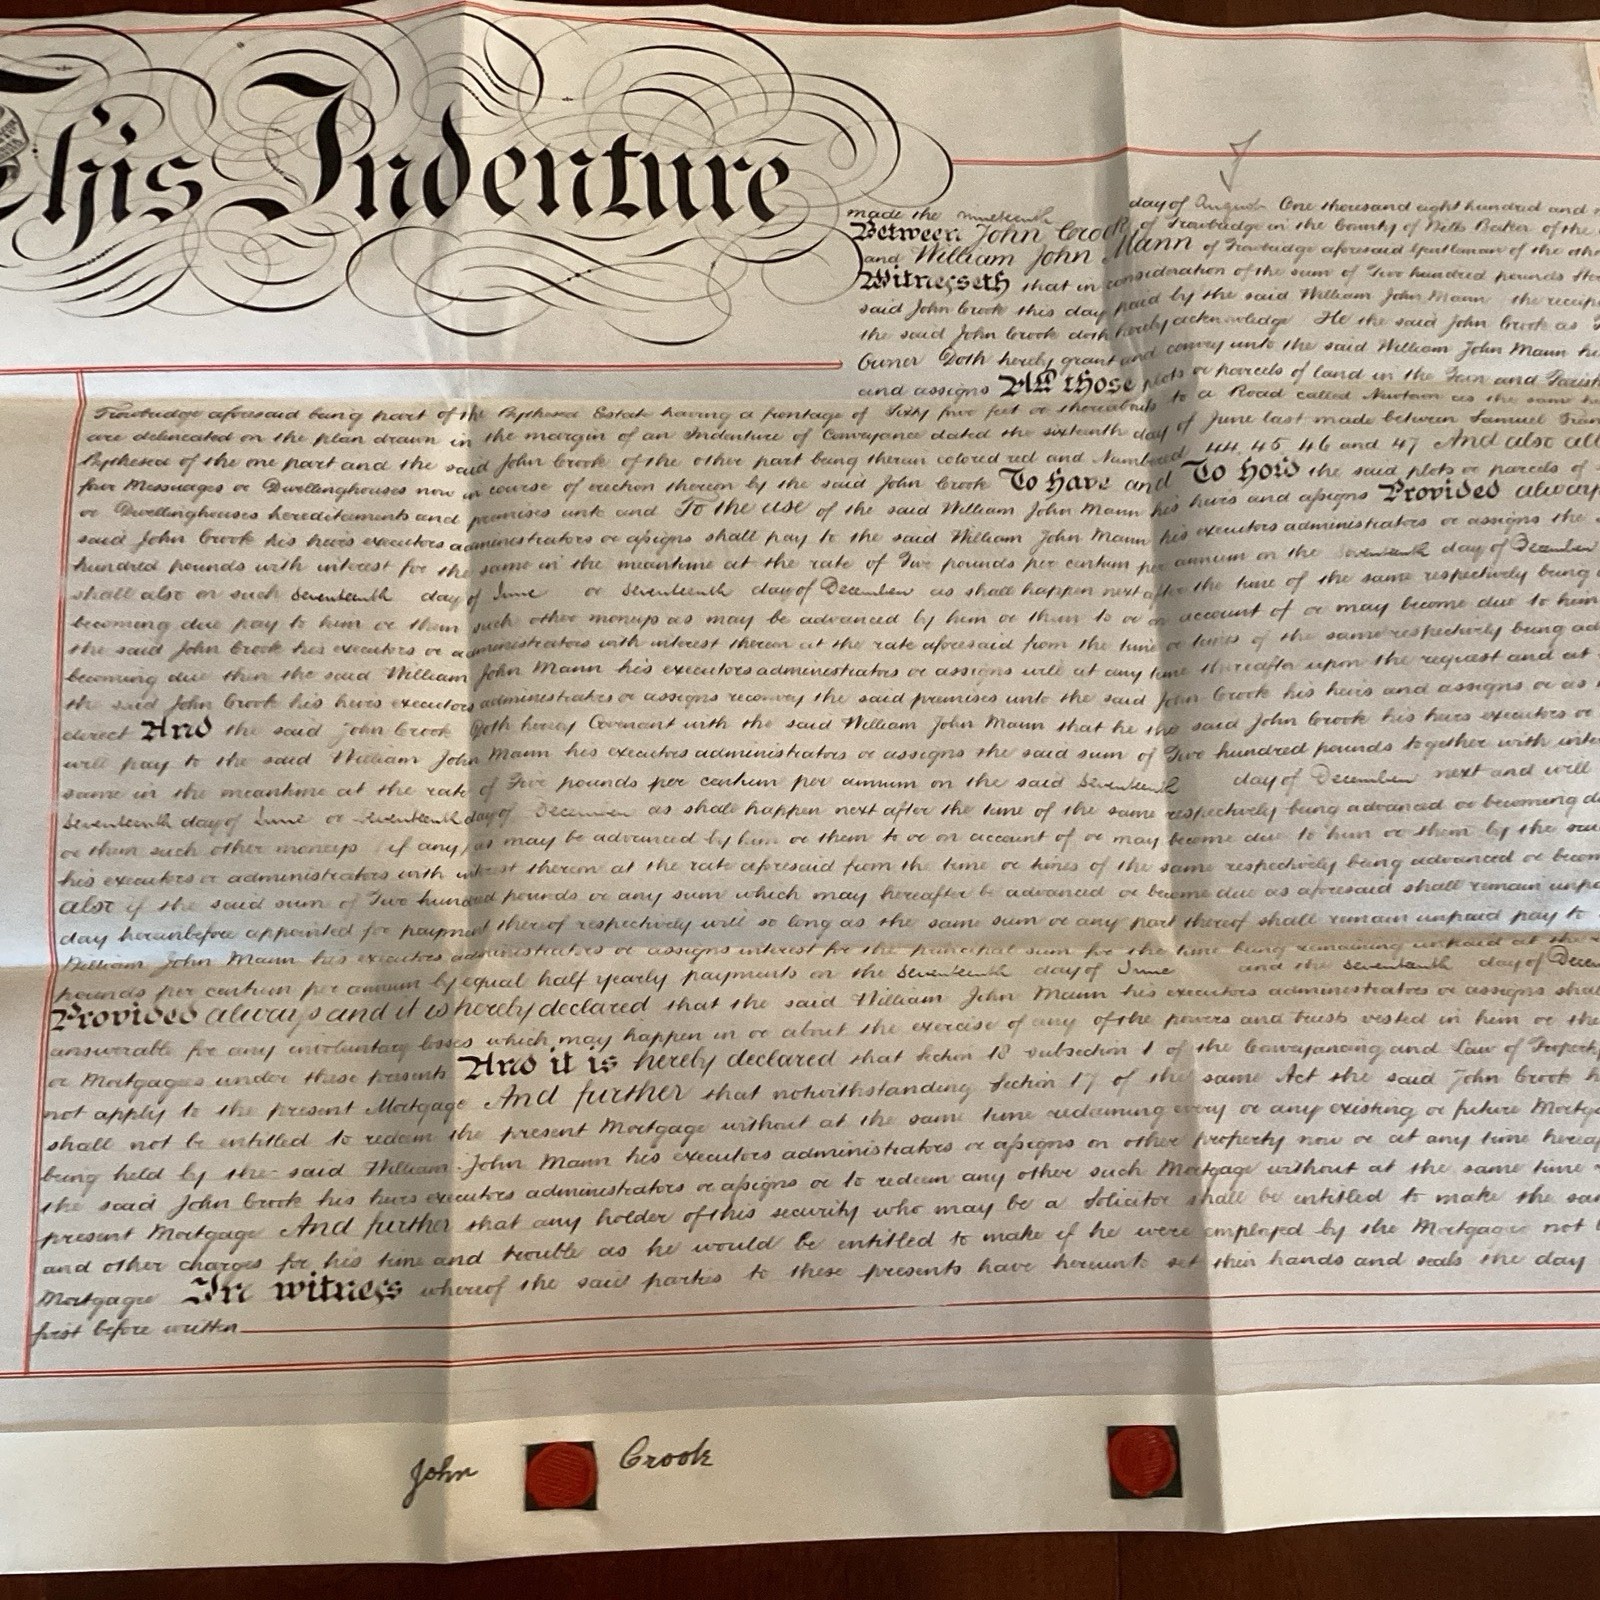 This Indenture
made the nineteenth day of August One thousand eight hundred and
Between John Crook of Trowbridge in the County of Wilts Baker of the
and William John Mann of Trowbridge aforesaid Gentleman of the
Witnesseth that in consideration of the sum of Two hundred pounds
said John Crook this day paid by the said William John Mann the
the said John Crook doth hereby acknowledge He the said John Crook as
Owner Doth hereby grant and convey unto the said William John Mann
and assigns All those plots or parcels of land in the Town and
Trowbridge aforesaid being part of the Estate having a frontage of Sixty five feet or thereabouts to a Road called Newtown as the same
are delineated on the plan drawn in the margin of an Indenture of Conveyance dated the sixteenth day of June last made between Samuel
of the one part and the said John Crook of the other part being therein colored red and Numbered 44. 45 46 and 47 And also all
four Messuages or Dwellinghouses now in course of erection thereon by the said John Crook To Have and To Hold the said plots or parcels of
or Dwellinghouses hereditaments and premises unto and To the use of the said William John Mann his heirs and assigns Provided always
said John Crook his heirs executors administrators or assigns shall pay to the said William John Mann his executors administrators or assigns the
hundred pounds with interest for the same in the meantime at the rate of Five pounds per centum per annum on the seventeenth day of December
shall also on such seventeenth day of June or seventeenth day of December as shall happen next after the time of the same respectively being
becoming due pay to him or them such other moneys as may be advanced by him or them to or on account of or may become due to him
the said John Crook his executors or administrators with interest thereon at the rate aforesaid from the time or times of the same respectively being
becoming due then the said William John Mann his executors administrators or assigns will at any time thereafter upon the request and at
the said John Crook his heirs executors administrators or assigns reconvey the said premises unto the said John Crook his heirs and assigns or as
direct And the said John Crook Doth hereby Covenant with the said William John Mann that he the said John Crook his heirs executors or
will pay to the said William John Mann his executors administrators or assigns the said sum of Two hundred pounds together with
same in the meantime at the rate of Five pounds per centum per annum on the said seventeenth day of December next and will
seventeenth day of June or seventeenth day of December as shall happen next after the time of the same respectively being advanced or becoming
or them such other moneys (if any) as may be advanced by him or them to or on account of or may become due to him or them by the
his executors or administrators with interest thereon at the rate aforesaid from the time or times of the same respectively being advanced or
also if the said sum of Two hundred pounds or any sum which may hereafter be advanced or become due as aforesaid shall remain
day hereinbefore appointed for payment thereof respectively will so long as the same sum or any part thereof shall remain unpaid pay to
William John Mann his executors administrators or assigns interest for the principal sum for the time being remaining unpaid at the
pounds per centum per annum by equal half yearly payments on the seventeenth day of June and the seventeenth day of
Provided always and it is hereby declared that the said William John Mann his executors administrators or assigns
answerable for any involuntary losses which may happen in or about the exercise of any of the powers and trusts vested in him or
or Mortgagees under these presents And it is hereby declared that Section 18 subsection 1 of the Conveyancing and Law of Property
not apply to the present Mortgage And further that notwithstanding Section 17 of the same Act the said John Crook
shall not be entitled to redeem the present Mortgage without at the same time redeeming every or any existing or future
being held by the said William John Mann his executors administrators or assigns on other property now or at any time
the said John Crook his heirs executors administrators or assigns or to redeem any other such Mortgage without at the same time
present Mortgage And further that any holder of this security who may be a Solicitor shall be entitled to make the
and other charges for his time and trouble as he would be entitled to make if he were employed by the Mortgagee not
Mortgagee In witness whereof the said parties to these presents have hereunto set their hands and seals the day
first before written
John Crook